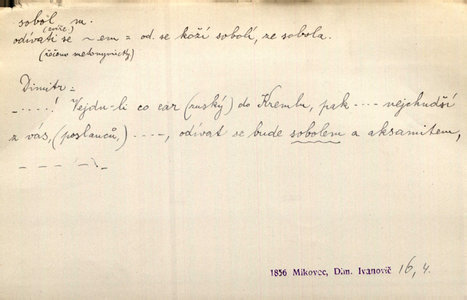 soból m.
(zvíř.)
odívati se ~ em = od. se koží sobolí, ze sobola.
(řečeno metonymicky)
Dimitr =
– . – . – . ! Vejdu-li co car (ruský) do Kremlu, pak ---- nejchudší
z vás, (poslanců,) ----, odívat se bude sobolem a aksamitem,
– – – – – .
1856 Mikovec, Dim. Ivanovič 16, 4.